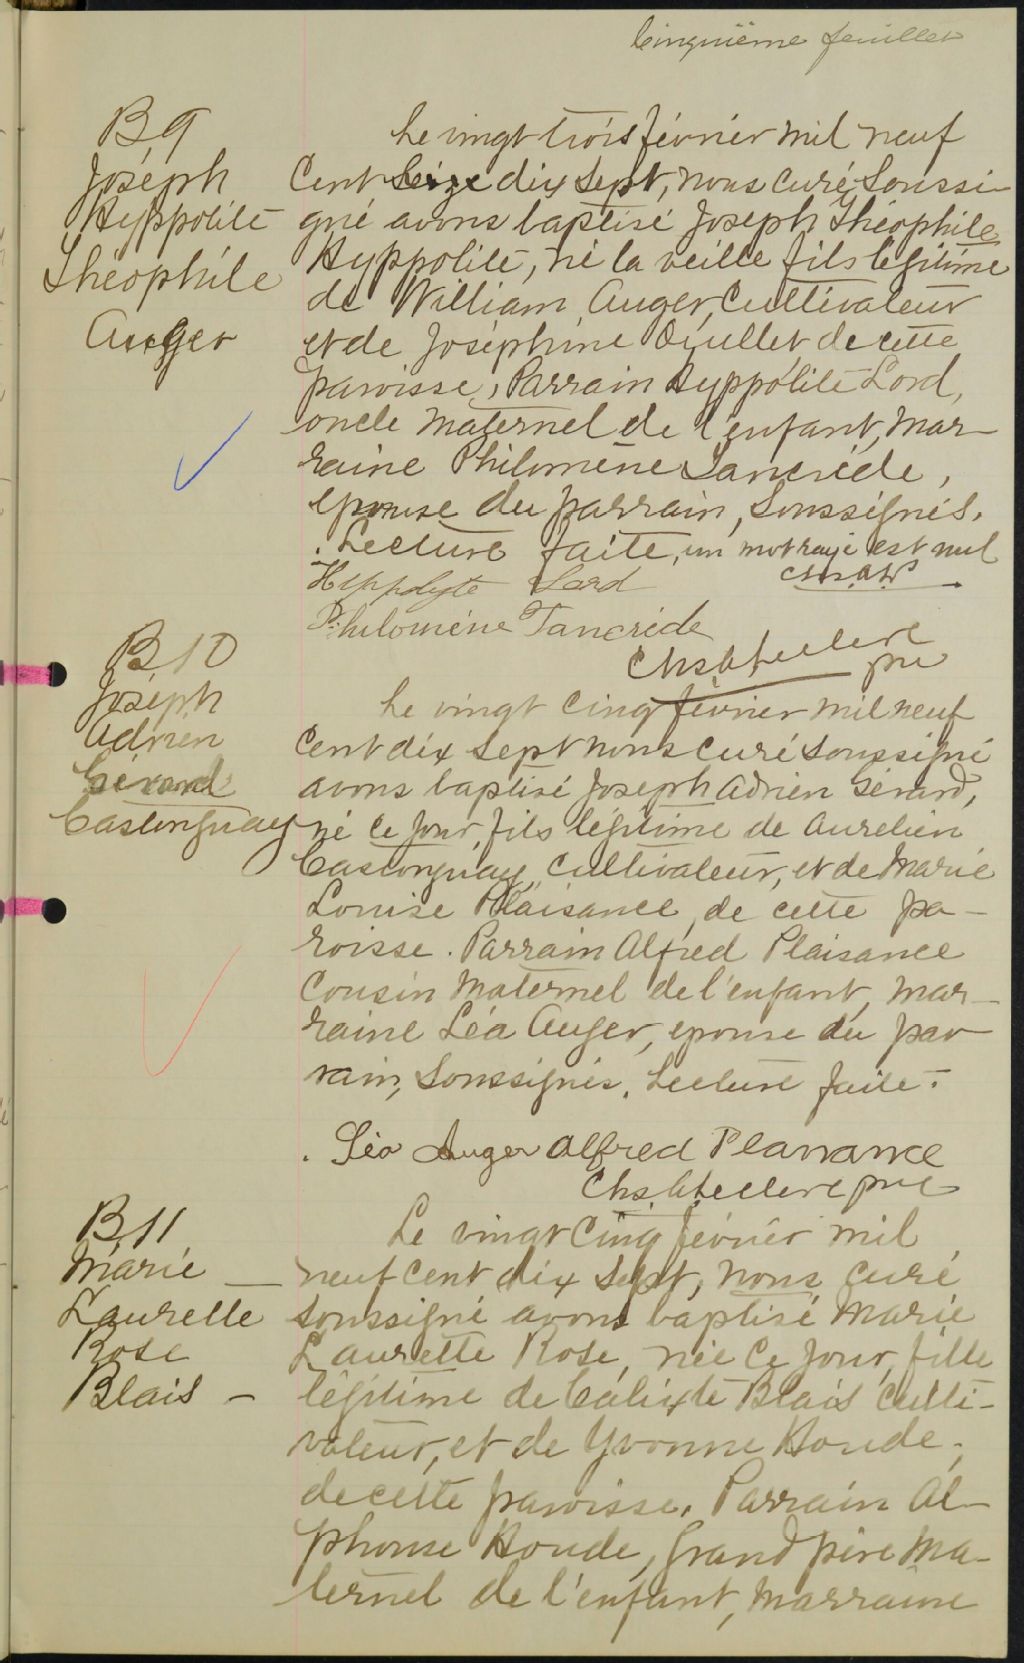 Cinquième feuillet
B 9
Joseph
Hyppolite
Théophile
Auger
Le vingt trois février mil neuf
cent Seize dix sept, nous curé soussi-
gné avons baptisé Joseph Théophile
Hyppolite, né la veille fils légitime
de William Auger, cultivateur
et de Joséphine Ouellet de cette
paroisse, Parrain Hyppolite Lord,
oncle maternel de l'enfant, mar-
raine Philomène Tancrède,
epouse du parrain, soussignés.
Lecture faite, un mot rayé est nul
Hyppolyte Lord
Philomène Tancrède
ptre
B 10
Joseph
Adrien
Gérard
Castonguay
Le vingt cinq février mil neuf
cent dix sept nous curé soussigné
avons baptisé Joseph Adrien Gérard,
né ce jour, fils légitime de Aurelien
Castonguay, cultivateur, et de Marie
Louise Plaisance, de cette pa-
roisse. Parrain Alfred Plaisance
cousin maternel de l'enfant, mar-
raine Léa Auger, epouse du par
rain, soussignés. Lecture faite.
Léa Auger Alfred Plaisance
ptre
B 11
Marie
Laurette
Rose
Blais -
Le vingt cinq février mil
neuf cent dix sept, nous curé
soussigné avons baptisé Marie
Laurette Rose, née ce jour, fille
légitime de Calixte Blais culti-
vateur, et de Yvonne Houde,
de cette paroisse. Parrain Al-
phonse Houde, grand père ma-
ternel de l'enfant, marraine